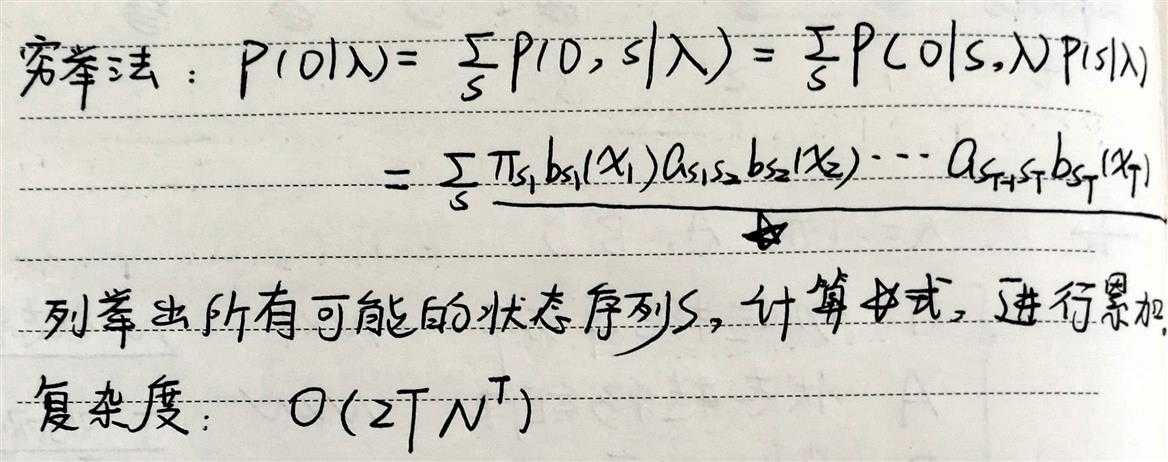 穷举法：P(O|λ)= ∑_S P(O,S|λ) = ∑_S P(O|S,λ)P(S|λ)
= ∑_S π_{S_1} b_{S_1}(x_1) a_{S_1S_2} b_{S_2}(x_2) ⋯ a_{S_{T-1}S_T} b_{S_T}(x_T)
☆
列举出所有可能的状态序列S，计算☆式，进行累加.
复杂度： O(2TN^T)